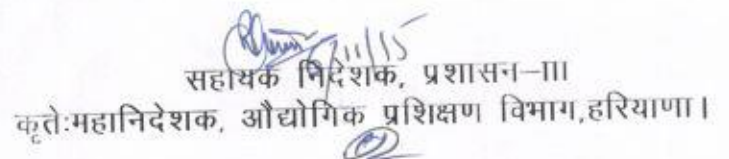 सहायक निदेशक, प्रशासन-III
कृतेःमहानिदेशक, औद्योगिक प्रशिक्षण विभाग,हरियाणा।